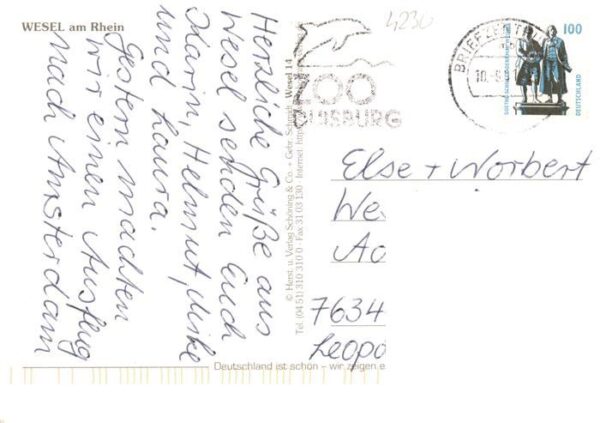 WESEL am Rhein
Herzliche Grüße aus
Wesel senden Euch
Karin, Helmut, Ulrike
und Laura.
Gestern machten
wir einen Ausflug
nach Amsterdam
© Herst. u. Verlag Schöning & Co. + Gebr. Schmidt Wesel 14
Tel. (04 51) 310 310 0 · Fax 31 03 130 · Internet: http
4230
ZOO
DUISBURG
BRIEFZENTRUM
10
100
GOETHE-SCHILLER-DENKMAL WEIMAR
DEUTSCHLAND
Else + Norbert
We
Ao
7634
Leopo
Deutschland ist schön – wir zeigen e